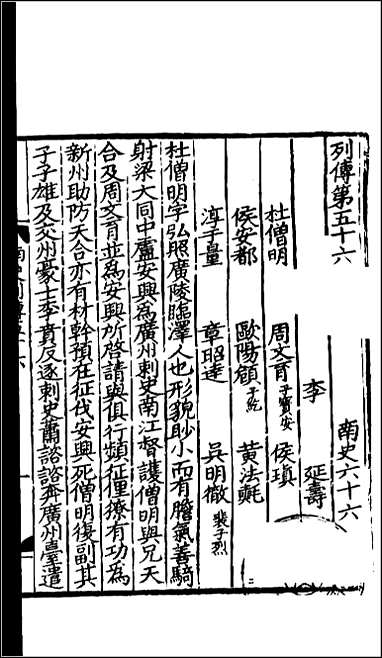 列傳第五十六　南史六十六
李　延壽
杜僧明　周文育子寶安　侯瑱
侯安都　歐陽頠子紇　黃法𣰋
淳于量　章昭達　吳明徹裴子烈
杜僧明字弘照廣陵臨澤人也形貌眇小而有膽氣善騎
射梁大同中盧安興爲廣州刺史南江督護僧明與兄天
合及周文育並爲安興所啓請與俱行頻征俚獠有功爲
新州助防天合亦有材幹預在征伐安興死僧明復副其
子子雄及交州豪士李賁反逐刺史蕭諮諮奔廣州臺遣